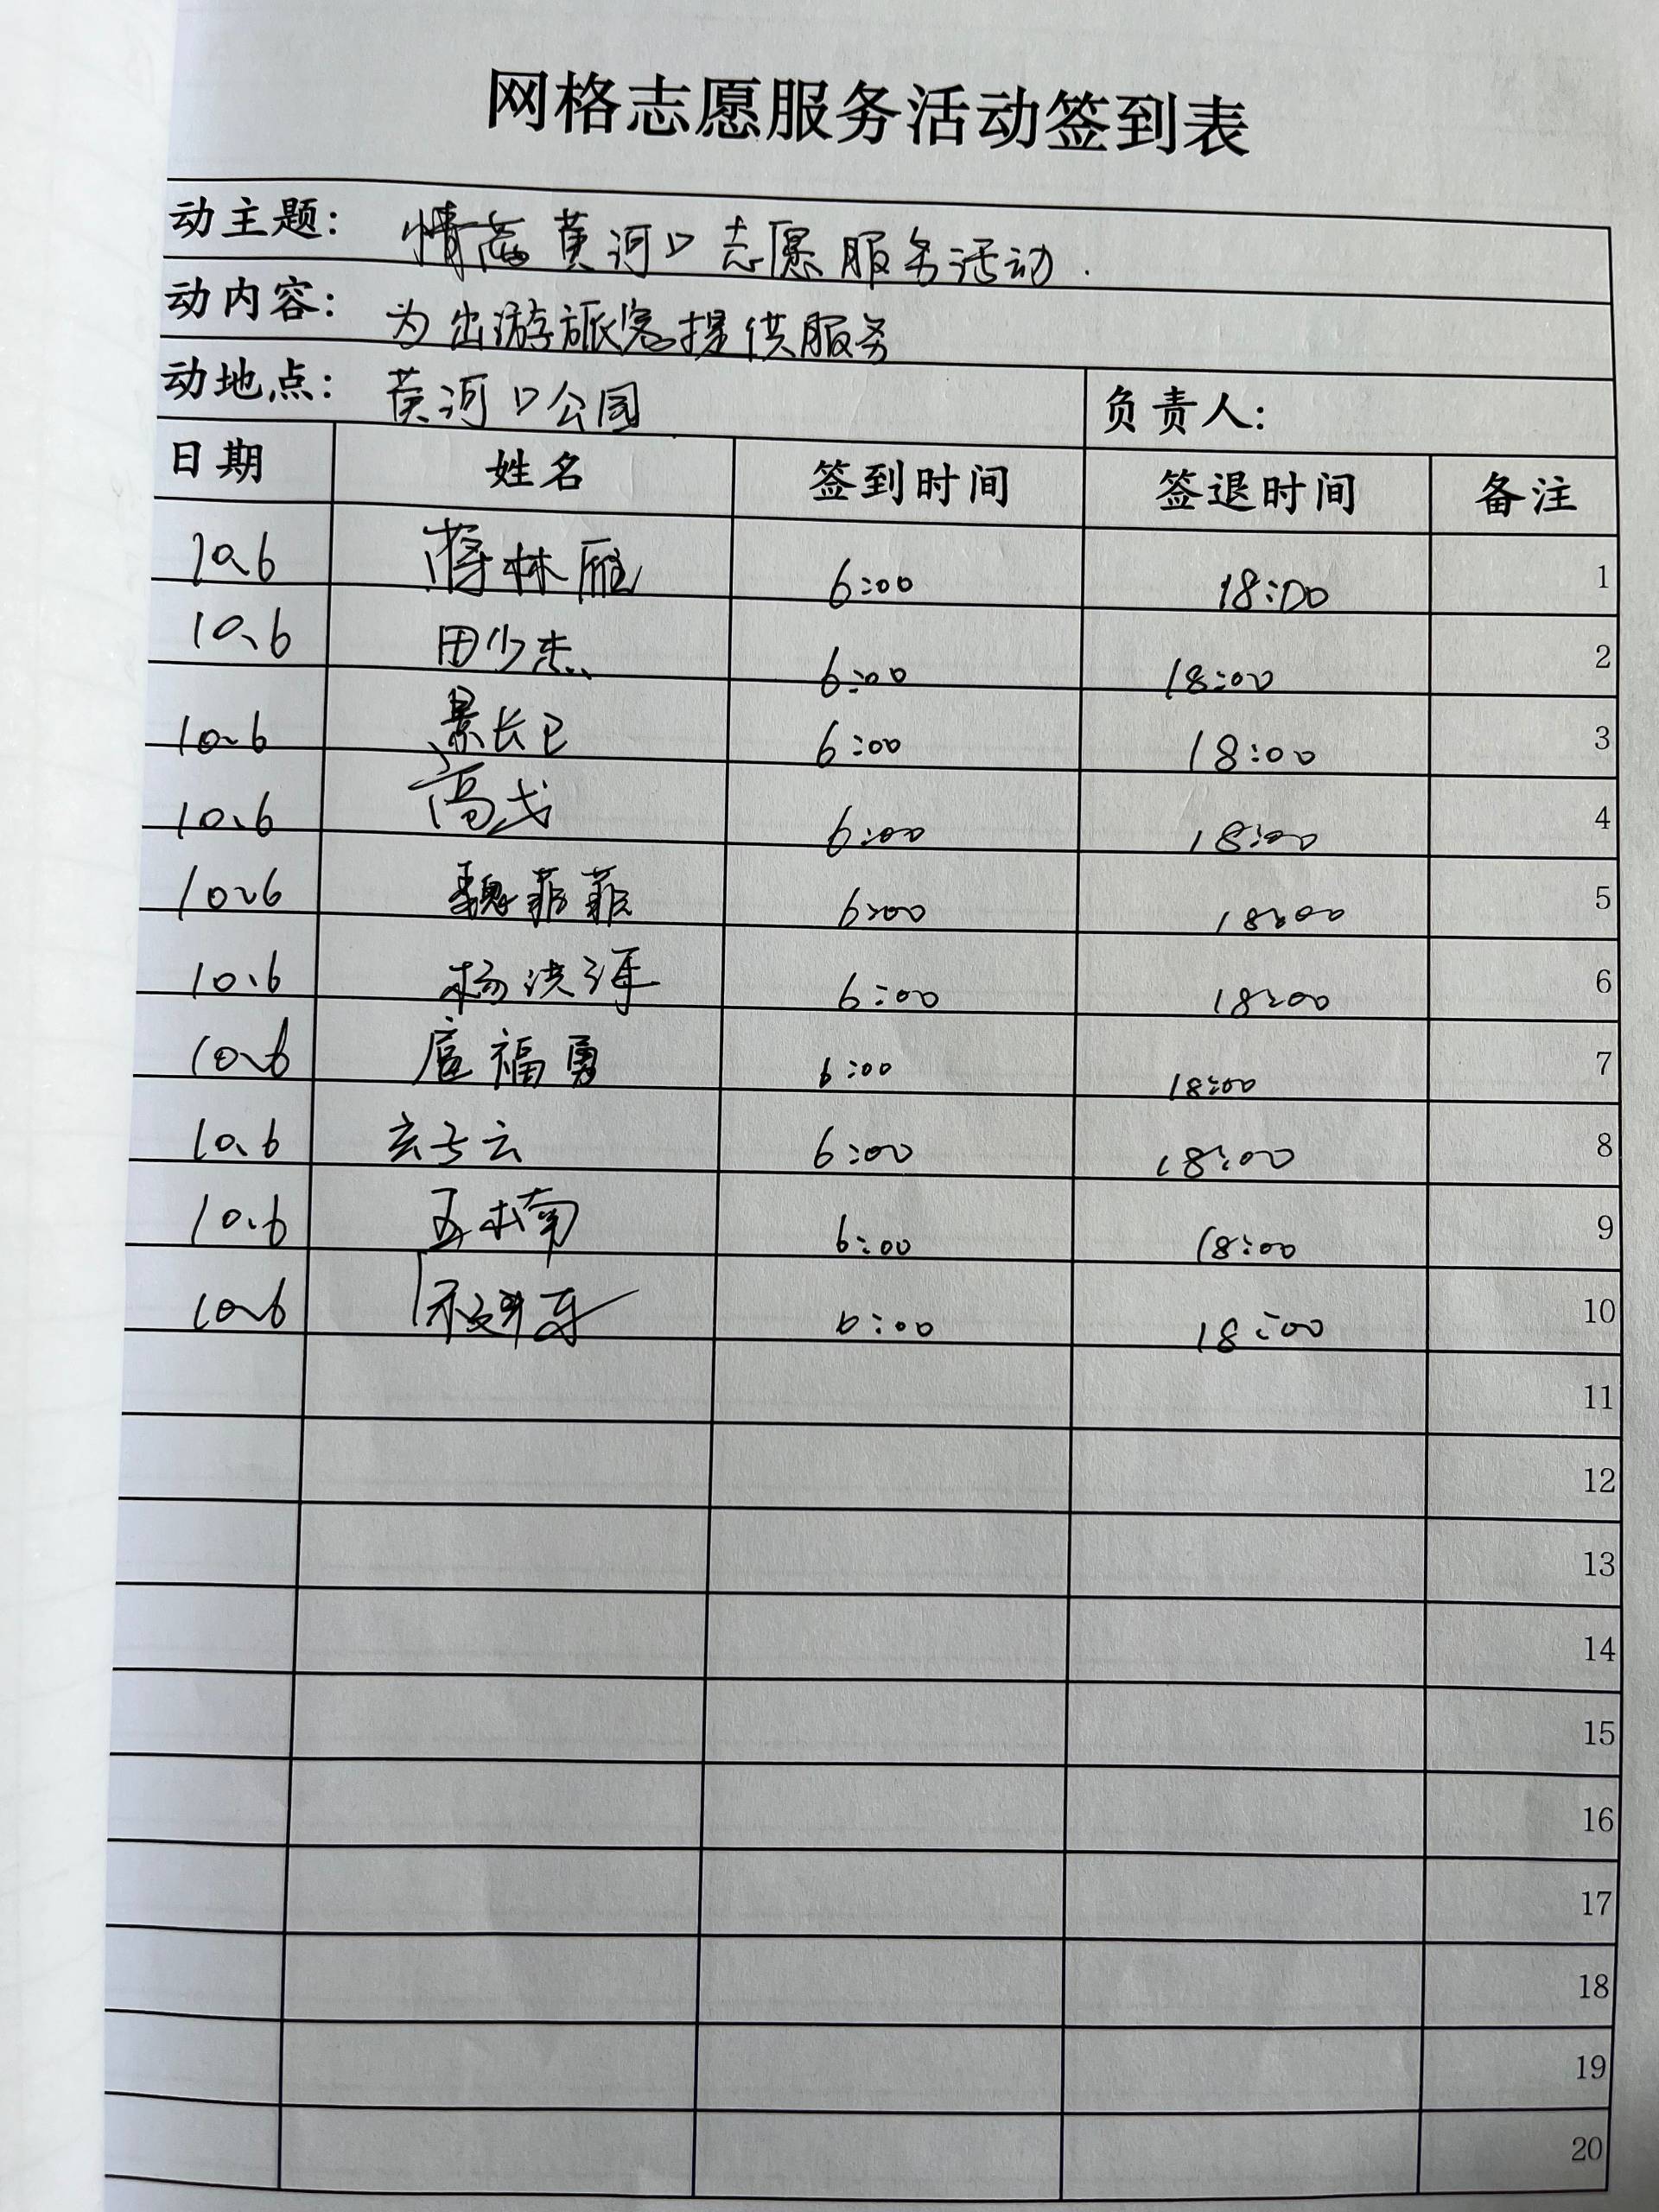 网格志愿服务活动签到表
动主题： 黄河口志愿服务活动.
动内容： 为出游旅客提供服务
动地点： 黄河口公园 负责人：
日期 姓名 签到时间 签退时间 备注
10、6 蒋林雁 6:00 18:00 1
10、6 田少杰 6:00 18:00 2
10、6 景长 6:00 18:00 3
10、6 高 6:00 18:00 4
10、6 魏菲菲 6:00 18:00 5
10、6 杨洪 6:00 18:00 6
10、6 扈福勇 6:00 18:00 7
10、6 玄子云 6:00 18:00 8
10、6 南 6:00 18:00 9
10、6 6:00 18:00 10
11
12
13
14
15
16
17
18
19
20